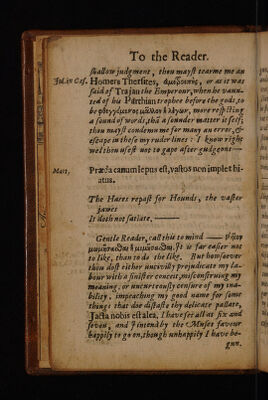 To the Reader.
shallow judgment, then mayst tearme me an
Jul. in Cæs. Homers Thersites, ἀμοτροεπὴς, or as it was
said of Trajan the Emperour, when he vaun-
ted of his Parthian trophee before the gods, to
be more respecting
a sound of words, thā a sounder matter it self;
thou mayst condemn me for many an error, &
escape in these my ruder lines: I know right
wel thou usest not to gape after gudgens—
Mart. Præda canum lepus est, vastos non implet hi-
atus.
The Hares repast for Hounds, the vaster
jawes
It doth not satiate.
Gentle Reader, cast this to mind — ῥᾷον
μωμεῖσθαι ἢ μιμεῖσθαι. It is far easier not
to like, than to do the like. But howsoever
thou dost either uncivilly prejudicate my la-
bour with a sinister conceit, misconstruing my
meaning, or uncurteously censure of my ina-
bility, impeaching my good name for some
things that doe distaste thy delicate pallate,
Jacta nobis est alea, I have set all at six and
seven, and I intend by the Muses favour
happily to go on, though unhappily I have be-
gun.